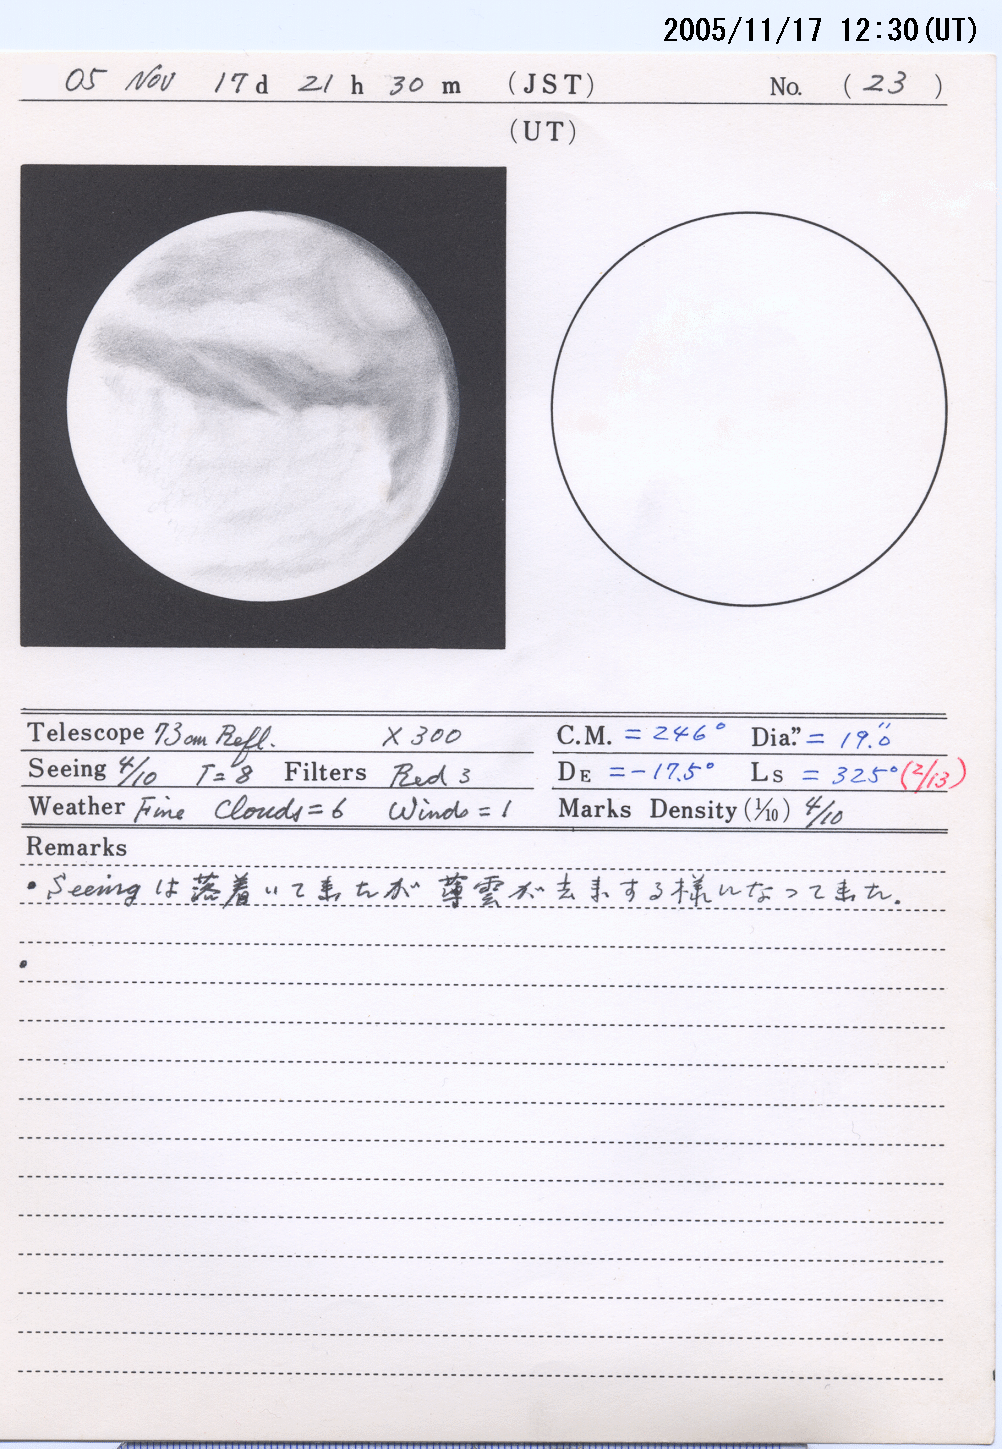 2005/11/17 12:30(UT)
05 Nov 17d 21h 30m (JST) No. (23)
(UT)
Telescope 73cm Refl. X300 C.M. = 246° Dia." = 19.″0
Seeing 4/10 T=8 Filters Red 3 DE = -17.5° Ls = 325° (2/13)
Weather Fine Clouds=6 Winds=1 Marks Density (1/10) 4/10
Remarks
• Seeingは落着いて来たが 薄雲が去来する様になって来た.
•